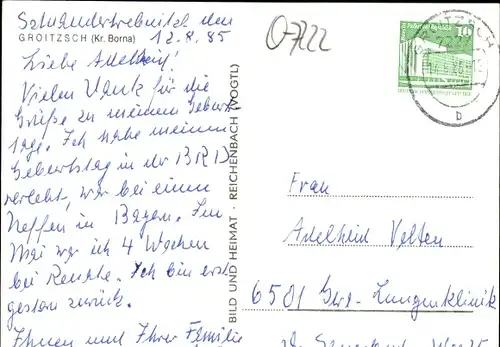 den
GROITZSCH (Kr. Borna)
12.8.85
0-7222
Liebe Adelheid!
Vielen Dank für die
Grüße zu meinem Geburts
tage. Ich habe meinen
Geburtstag in der BRD
verlebt, war bei einem
Neffen in Bayern. Im
Mai war ich 4 Wochen
bei Renate. Ich bin erst
gestern zurück.
Ihnen und Ihrer Familie
BILD UND HEIMAT · REICHENBACH (VOGTL)
GROITZSCH
10
b
Frau
Adelheid Velten
6501 Lungenklinik